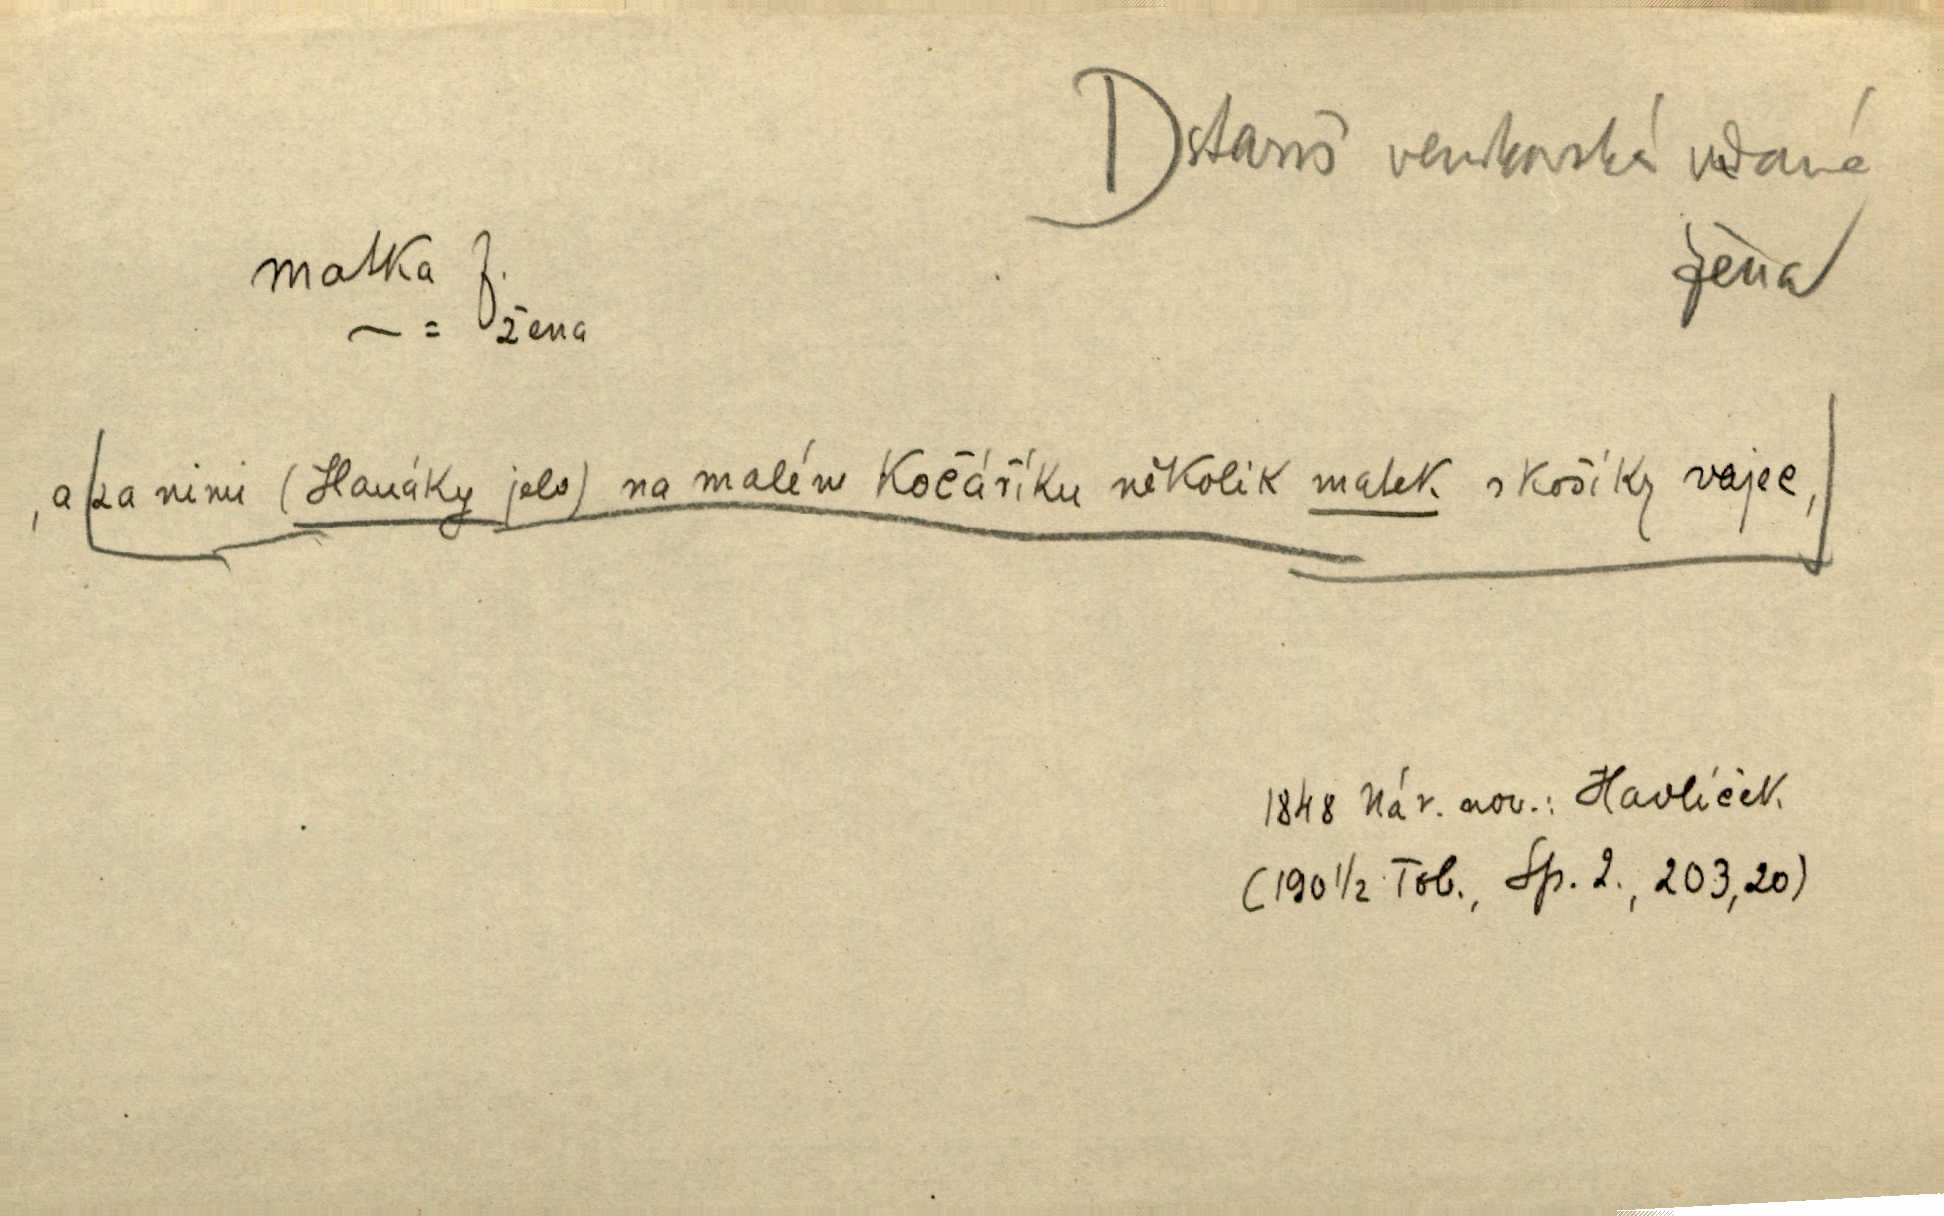 D starší venkovská vdaná
žena
matka f.
~ = žena
, a za nimi (Hanáky jelo) na malém Kočáříku několik matek s košíky vajec,
1848 Nár. nov.: Havlíček
(190 1/2 Tob., Sp. 2., 203,20)